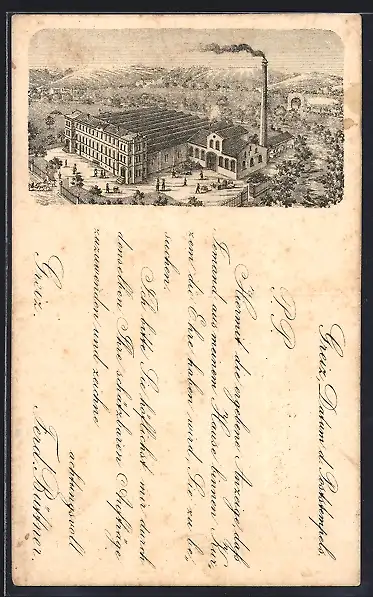 Greiz, Datum d. Poststempels.
P. P.
Hiermit die ergebene Anzeige, daß
Jemand aus meinem Hause binnen Kur-
zem die Ehre haben wird Sie zu be-
suchen.
Ich bitte Sie höflichst mir durch
denselben Ihre schätzbaren Aufträge
zuzuwenden und zeichne
achtungsvoll
Greiz. Ferd. Büttner.